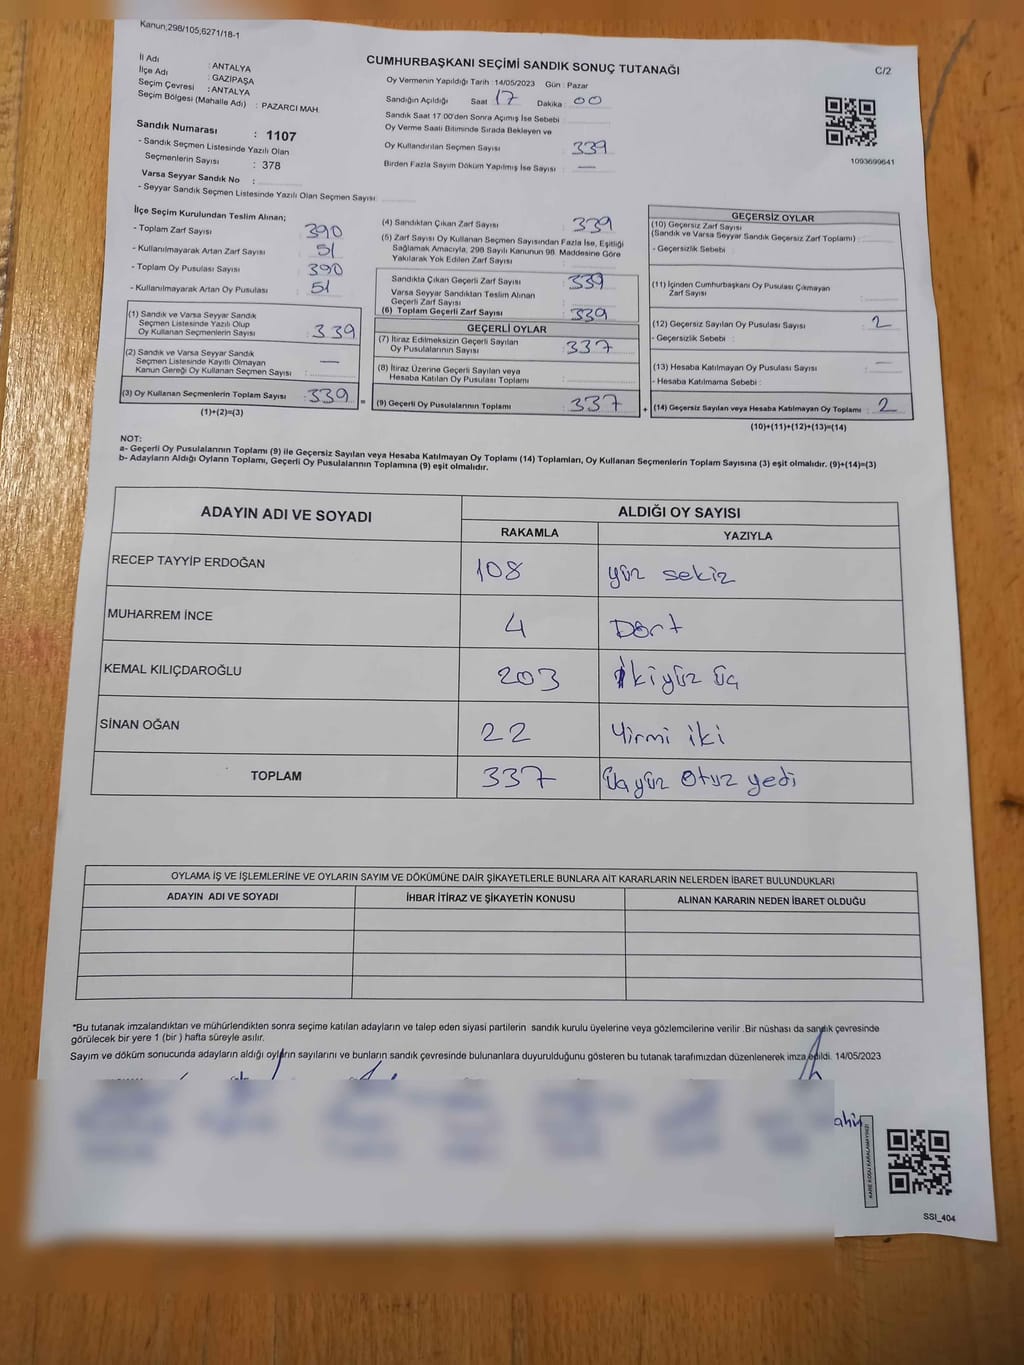 Kanun,298/105,6271/18-1
İl Adı : ANTALYA
İlçe Adı : GAZİPAŞA
Seçim Çevresi : ANTALYA
Seçim Bölgesi (Mahalle Adı) : PAZARCI MAH.
Sandık Numarası : 1107
- Sandık Seçmen Listesinde Yazılı Olan
Seçmenlerin Sayısı : 378
Varsa Seyyar Sandık No :
- Seyyar Sandık Seçmen Listesinde Yazılı Olan Seçmen Sayısı
CUMHURBAŞKANI SEÇİMİ SANDIK SONUÇ TUTANAĞI
C/2
Oy Vermenin Yapıldığı Tarih :14/05/2023 Gün : Pazar
Sandığın Açıldığı Saat 17 Dakika 00
Sandık Saat 17:00'den Sonra Açımış İse Sebebi
Oy Verme Saati Bitiminde Sırada Bekleyen ve
Oy Kullandırılan Seçmen Sayısı 339
Birden Fazla Sayım Döküm Yapılmış İse Sayısı : —
1093699641
İlçe Seçim Kurulundan Teslim Alınan;
- Toplam Zarf Sayısı 390
- Kullanılmayarak Artan Zarf Sayısı 51
- Toplam Oy Pusulası Sayısı 390
- Kullanılmayarak Artan Oy Pusulası 51
(1) Sandık ve Varsa Seyyar Sandık
Seçmen Listesinde Yazılı Olup
Oy Kullanan Seçmenlerin Sayısı : 339
(2) Sandık ve Varsa Seyyar Sandık
Seçmen Listesinde Kayıtlı Olmayan
Kanun Gereği Oy Kullanan Seçmen Sayısı : —
(3) Oy Kullanan Seçmenlerin Toplam Sayısı : 339
(1)+(2)=(3)
(4) Sandıktan Çıkan Zarf Sayısı 339
(5) Zarf Sayısı Oy Kullanan Seçmen Sayısından Fazla İse, Eşitliği
Sağlamak Amacıyla, 298 Sayılı Kanunun 98. Maddesine Göre
Yakılarak Yok Edilen Zarf Sayısı :
Sandıkta Çıkan Geçerli Zarf Sayısı : 339
Varsa Seyyar Sandıktan Teslim Alınan
Geçerli Zarf Sayısı :
(6) Toplam Geçerli Zarf Sayısı : 339
GEÇERLİ OYLAR
(7) İtiraz Edilmeksizin Geçerli Sayılan
Oy Pusulalarının Sayısı : 337
(8) İtiraz Üzerine Geçerli Sayılan veya
Hesaba Katılan Oy Pusulası Toplamı :
= (9) Geçerli Oy Pusulalarının Toplamı : 337
GEÇERSİZ OYLAR
(10) Geçersiz Zarf Sayısı
(Sandık ve Varsa Seyyar Sandık Geçersiz Zarf Toplamı) :
- Geçersizlik Sebebi :
(11) İçinden Cumhurbaşkanı Oy Pusulası Çıkmayan
Zarf Sayısı :
(12) Geçersiz Sayılan Oy Pusulası Sayısı : 2
- Geçersizlik Sebebi :
(13) Hesaba Katılmayan Oy Pusulası Sayısı : —
- Hesaba Katılmama Sebebi :
+ (14) Geçersiz Sayılan veya Hesaba Katılmayan Oy Toplamı : 2
(10)+(11)+(12)+(13)=(14)
NOT:
a- Geçerli Oy Pusulalarının Toplamı (9) ile Geçersiz Sayılan veya Hesaba Katılmayan Oy Toplamı (14) Toplamları, Oy Kullanan Seçmenlerin Toplam Sayısına (3) eşit olmalıdır. (9)+(14)=(3)
b- Adayların Aldığı Oyların Toplamı, Geçerli Oy Pusulalarının Toplamına (9) eşit olmalıdır.
ADAYIN ADI VE SOYADI
ALDIĞI OY SAYISI
RAKAMLA YAZIYLA
RECEP TAYYİP ERDOĞAN 108 yüz sekiz
MUHARREM İNCE 4 Dört
KEMAL KILIÇDAROĞLU 203 İkiyüz üç
SİNAN OĞAN 22 Yirmi iki
TOPLAM 337 Üçyüz Otuz yedi
OYLAMA İŞ VE İŞLEMLERİNE VE OYLARIN SAYIM VE DÖKÜMÜNE DAİR ŞİKAYETLERLE BUNLARA AİT KARARLARIN NELERDEN İBARET BULUNDUKLARI
ADAYIN ADI VE SOYADI İHBAR İTİRAZ VE ŞİKAYETİN KONUSU ALINAN KARARIN NEDEN İBARET OLDUĞU
*Bu tutanak imzalandıktan ve mühürlendikten sonra seçime katılan adayların ve talep eden siyasi partilerin sandık kurulu üyelerine veya gözlemcilerine verilir .Bir nüshası da sandık çevresinde
görülecek bir yere 1 (bir ) hafta süreyle asılır.
Sayım ve döküm sonucunda adayların aldığı oyların sayılarını ve bunların sandık çevresinde bulunanlara duyurulduğunu gösteren bu tutanak tarafımızdan düzenlenerek imza edildi. 14/05/2023
SSI_404